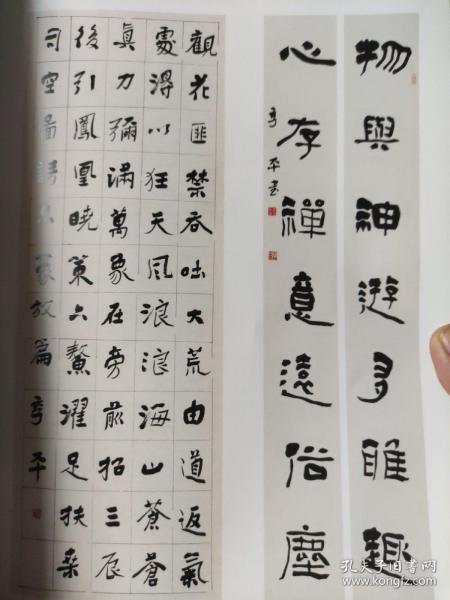 物與神遊多雅趣
心存禪意遠俗塵
亨平書
觀花匪禁吞吐大荒由道返氣
處得以狂天風浪浪海山蒼蒼
真力彌滿萬象在旁前招三辰
後引鳳凰曉策六鰲濯足扶桑
司空圖詩品豪放篇亨平
孔夫子旧书网
www.kongfz.com